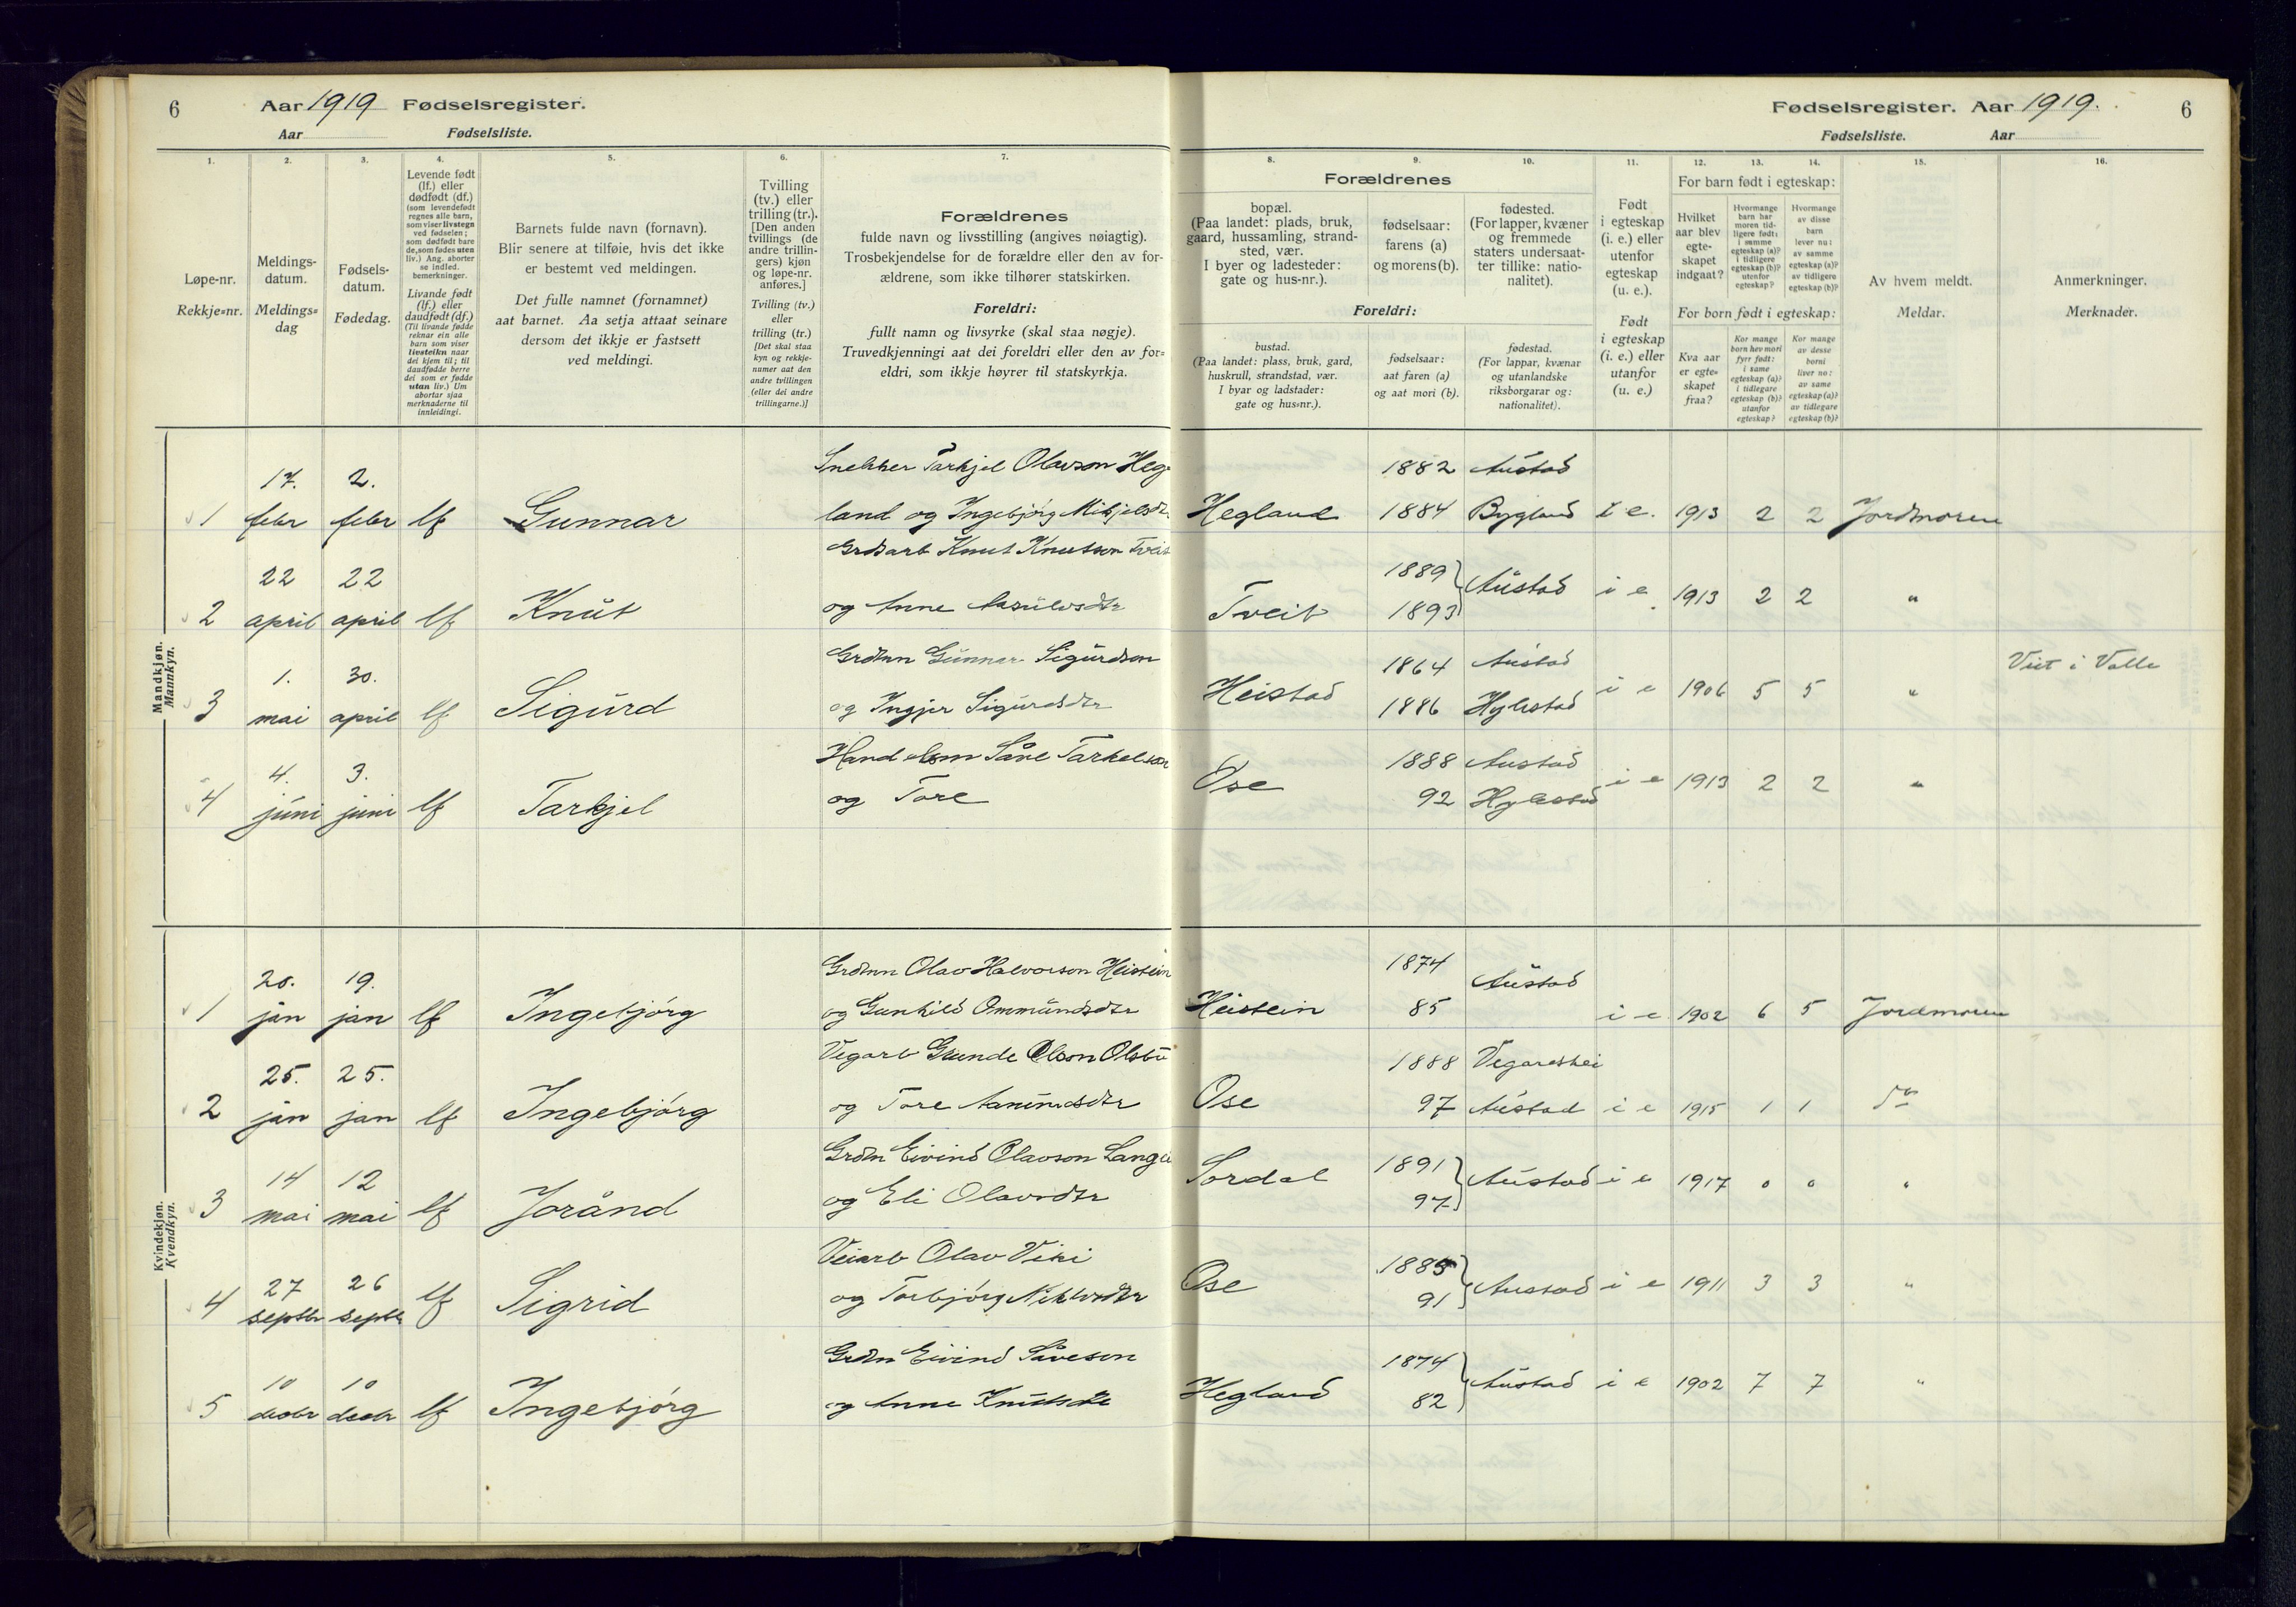 6 Aar 1919 Fødselsregister.
Aar Fødselsliste.
Fødselsregister. Aar 1919. 6
Fødselsliste. Aar
1. 2. 3. 4. 5. 6. 7.
Løpe-nr.
Rekkje=nr.
Meldings-
datum.
Meldings=
dag
Fødsels-
datum.
Fødedag.
Levende født
(lf.) eller
dødfødt (df.)
(som levendefødt
regnes alle barn,
som viser livstegn
ved fødselen;
som dødfødt bare
de, som fødes uten
liv.) Ang. aborter
se indled.
bemerkninger.
Livande født
(lf.) eller
daudfødt (df.)
(Til livande fødde
reknar ein alle
barn som viser
livsteikn naar
dei kjem til; til
daudfødde berre
dei som er fødde
utan liv.) Um
abortar sjaa
merknaderne til
innleidingi.
Barnets fulde navn (fornavn).
Blir senere at tilføie, hvis det ikke
er bestemt ved meldingen.
Det fulle namnet (fornamnet)
aat barnet. Aa setja attaat seinare
dersom det ikkje er fastsett
ved meldingi.
Tvilling
(tv.) eller
trilling (tr.).
[Den anden
tvillings (de
andre trillin-
gers) kjøn
og løpe-nr.
anføres.]
Tvilling (tv.)
eller
trilling (tr.)
[Det skal staa
kyn og rekkje-
numer aat den
andre tvillingen
(eller dei andre
trillingarne.)]
Forældrenes
fulde navn og livsstilling (angives nøiagtig).
Trosbekjendelse for de forældre eller den av for-
ældrene, som ikke tilhører statskirken.
Foreldri:
fullt namn og livsyrke (skal staa nøgje).
Truvedkjenningi aat dei foreldri eller den av for=
eldri, som ikkje høyrer til statskyrkja.
8. 9. 10. 11. 12. 13. 14. 15. 16.
Forældrenes
bopæl.
(Paa landet: plads, bruk,
gaard, hussamling, strand-
sted, vær.
I byer og ladesteder:
gate og hus-nr.).
fødselsaar:
farens (a)
og morens (b).
fødested.
(For lapper, kvæner
og fremmede
staters undersaat-
ter tillike: natio-
nalitet).
Foreldri:
bustad.
(Paa landet: plass, bruk, gard,
huskrull, strandstad, vær.
I byar og ladstader:
gate og hus=nr.).
fødselsaar:
aat faren (a)
og aat mori (b).
fødestad.
(For lappar, kvænar
og utanlandske
riksborgarar og:
nationalitet).
Født
i egteskap
(i. e.) eller
utenfor
egteskap
(u. e.).
Født
i egteskap
(i. e.) eller
utanfor
(u. e.)
For barn født i egteskap:
Hvilket
aar blev
egte-
skapet
indgaat?
Hvormange
barn har
moren tid-
ligere født:
i samme
egteskap (a)?
i tidligere
egteskap (b)?
utenfor
egteskap?
Hvormange
av disse
barn
lever nu:
av samme
egteskap (a)?
av tidligere
egteskap (b)?
For born født i egteskap:
Kva aar
er egte=
skapet
fraa?
Kor mange
born hev mori
fyrr født:
i same
egteskap (a)?
i tidlegare
egteskap (b)?
utanfor
egteskap?
Kor mange
av desse
borni
liver no:
av same
egteskap (a)?
av tidlegare
egteskap (b)?
Av hvem meldt.
Meldar.
Anmerkninger.
Merknader.
Mandkjøn.
Mannkyn.
17. 2. Snekker Tarkjel Olavson Heg- 1882 Austad
1 febr febr lf Gunnar land og Ingebjørg Mikjelsdtr Hegland 1884 Bygland i e. 1913 2 2 Jordmoren
Grdsarb Knut Knutson Tveit
22 22 1889 Austad
2 april april lf Knut og Anne Tveit 1893 i e 1913 2 2 "
1. 30. Grdmn Gunnar Sigurdson 1864 Austad Viet i Valle
3 mai april lf Sigurd og Ingjer Sigurdsdtr Heistad 1886 Hylestad i e 1906 5 5 "
4. 3. Handelsm Såve Tarkelson 1888 Austad
4 juni juni lf Tarkjel og Tore Ose 92 Hylestad i e 1913 2 2 "
Kvindekjøn.
Kvendkyn.
20. 19. Grdmn Olav Halvorson Heistein 1874 Austad
1 jan jan lf Ingebjørg og Gunhild Ommundsdtr Heistein 85 i e 1902 6 5 Jordmoren
25. 25. Vegarb Gunde Olson Olsbu 1888 Vegareshei
2 jan jan lf Ingebjørg og Tore Aanundsdtr Ose 97 Austad i e 1915 1 1 do
14 12 Grdm Eivind Olavson Langei 1891 Austad
3 mai mai lf Joránd og Eli Olavsdtr Sordal 97 i e 1917 0 0 "
27 26 Veiarb Olav Viki 1885 Austad
4 septbr septbr lf Sigrid og Torbjørg Ose 91 i e 1911 3 3 "
10 10 Grdm Eivind Såveson 1874 Austad
5 decbr decbr lf Ingebjørg og Anne Knutsdtr Hegland 82 i e 1902 7 7 "